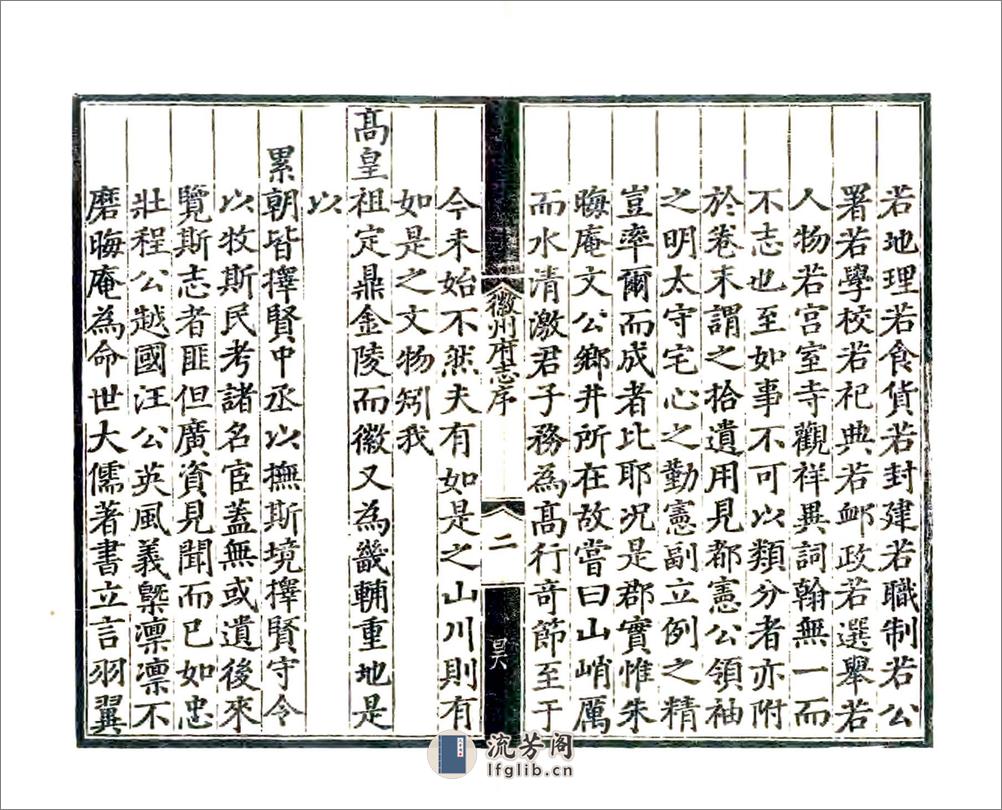 若地理若食貨若封建若職制若公
署若學校若祀典若䘏政若選舉若
人物若宮室寺觀祥異詞翰無一而
不志也至如事不可以類分者亦附
於卷末謂之拾遺用見都憲公領袖
之明太守宅心之勤憲副立例之精
豈率爾而成者比耶况是郡實惟朱
晦庵文公鄉井所在故嘗曰山峭厲
而水清激君子務為髙行竒節至于
徽州府志序
二
今未始不然夫有如是之山川則有
如是之文物矧我
髙皇祖定鼎金陵而徽又為畿輔重地是
以
累朝皆擇賢中丞以撫斯境擇賢守令
以牧斯民考諸名宦蓋無或遺後來
覽斯志者匪但廣資見聞而已如忠
壯程公越國汪公英風義槩凛凛不
磨晦庵為命世大儒著書立言羽翼
流芳阁
lfglib.cn